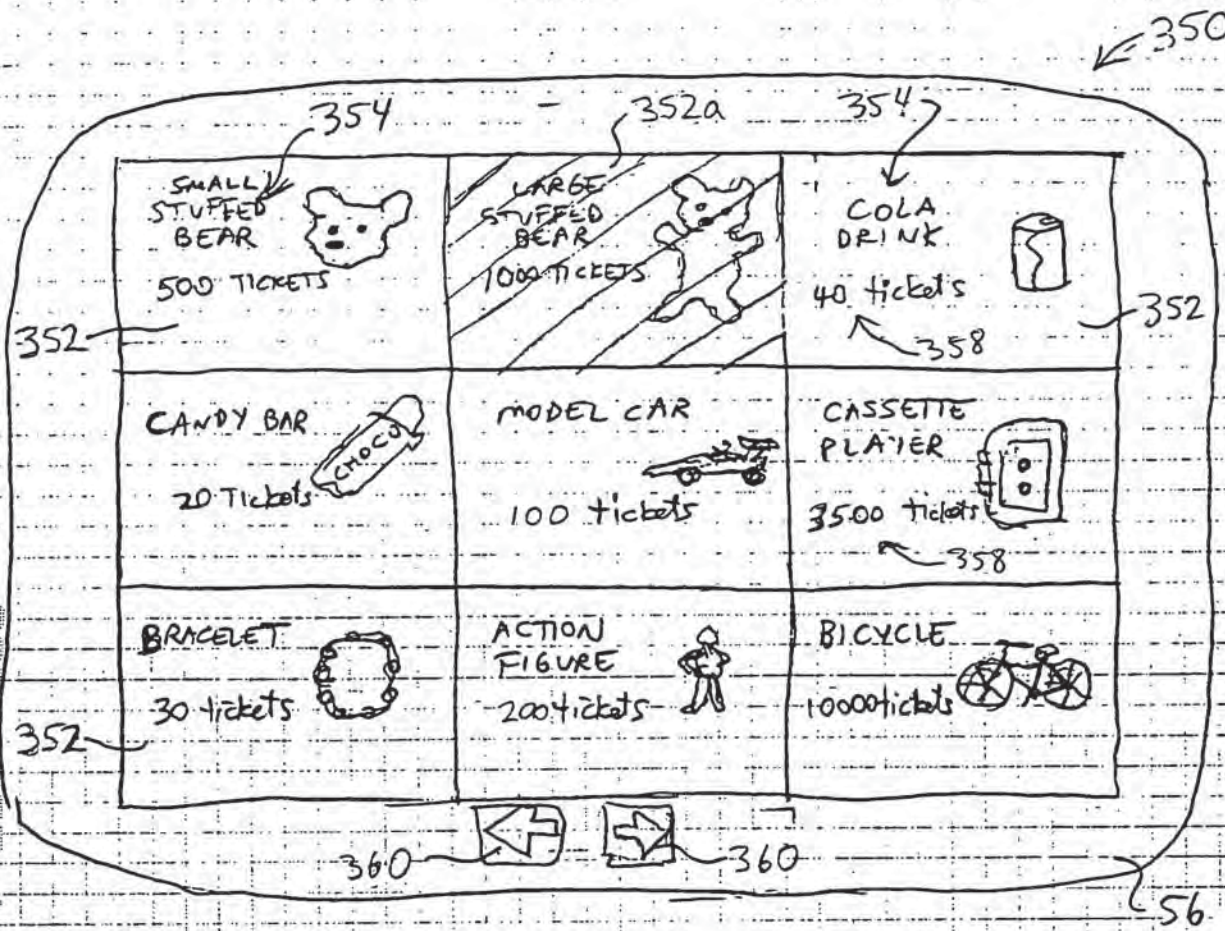 350
354
352a
354
SMALL
STUFFED
BEAR
500 TICKETS
LARGE
STUFFED
BEAR
1000 TICKETS
COLA
DRINK
40 tickets
352
352
358
CANDY BAR
CHOCO
20 Tickets
MODEL CAR
100 tickets
CASSETTE
PLAYER
3500 tickets
358
BRACELET
30 tickets
ACTION
FIGURE
200 tickets
BICYCLE
10000 tickets
352
360
360
56